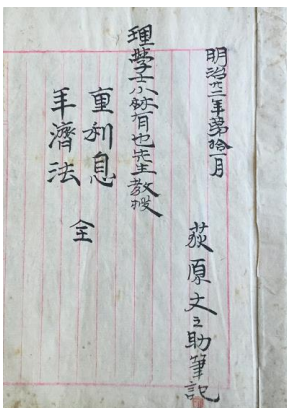 明治廿二年第拾一月
荻原丈之助筆記
理學士小林有也先生教授
重利息
年濟法
全